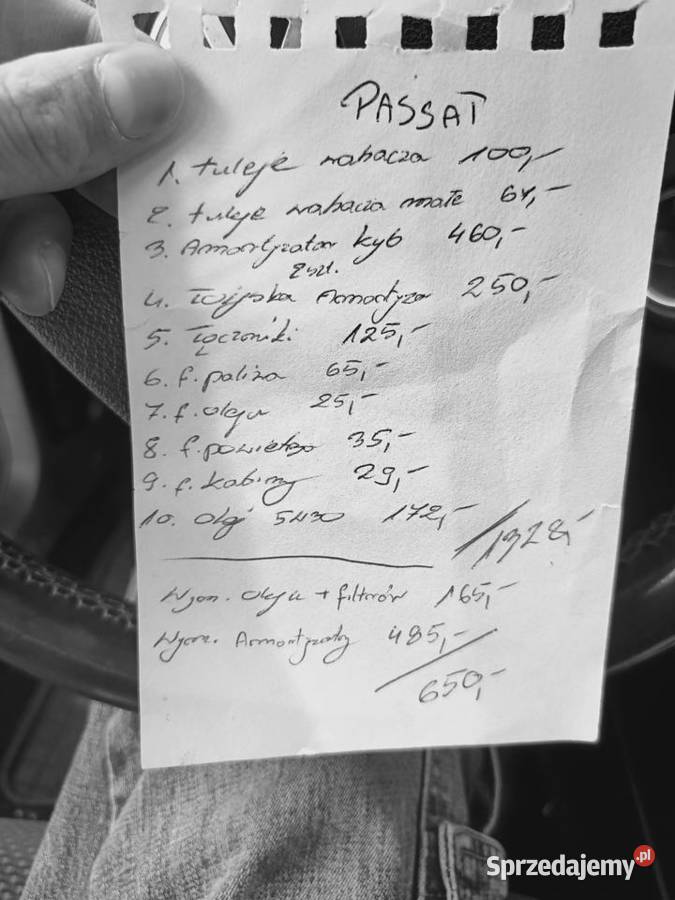 PASSAT
1. tuleje wahacza 100,-
2. tuleje wahacza małe 64,-
3. Amortyzator kyb 460,-
2szt.
4. Łożyska Amortyza 250,-
5. Łączniki 125,-
6. f. paliwa 65,-
7. f. oleju 25,-
8. f. powietrza 35,-
9. f. kabiny 29,-
10. Olej 5W30 172,-
1328,-
Wym. Oleju + filtrów 165,-
Wym. Amortyzatory 485,-
650,-
Sprzedajemy.pl